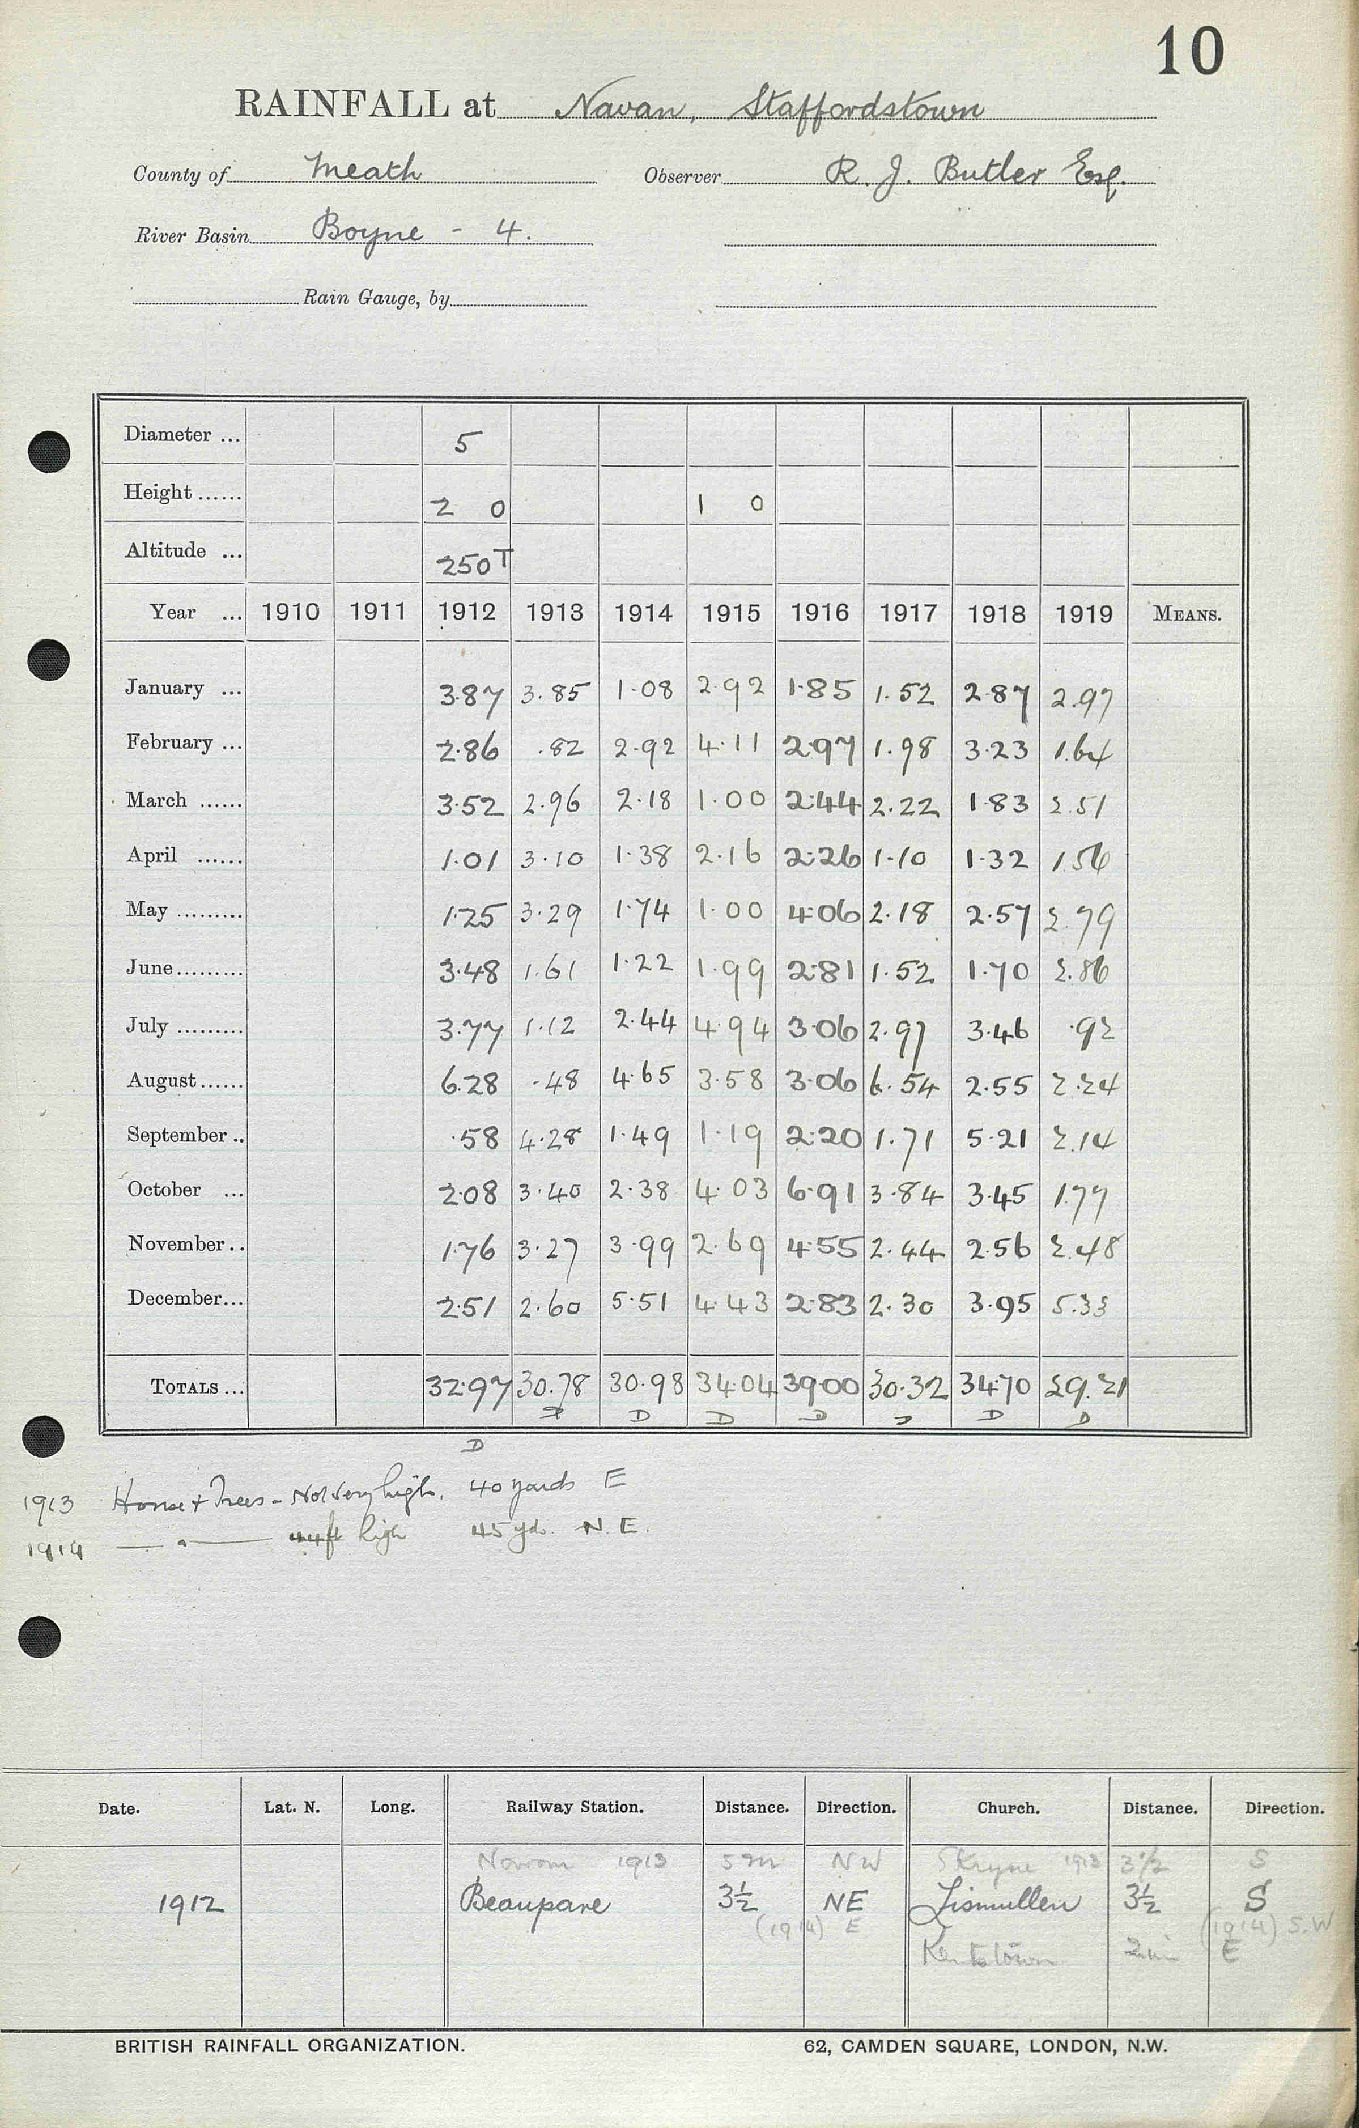 10
RAINFALL at Navan, Staffordstown
County of Meath Observer R. J. Butler Esq.
River Basin Boyne - 4.
Rain Gauge, by
Diameter ... 5
Height...... 2 0 1 0
Altitude ... 250T
Year ... 1910 1911 1912 1913 1914 1915 1916 1917 1918 1919 MEANS.
January ... 3.87 3.85 1.08 2.92 1.85 1.52 2.87 2.97
February ... 2.86 .82 2.92 4.11 2.97 1.98 3.23 1.64
March ...... 3.52 2.96 2.18 1.00 2.44 2.22 1.83 2.51
April ...... 1.01 3.10 1.38 2.16 2.26 1.10 1.32 1.56
May ......... 1.25 3.29 1.74 1.00 4.06 2.18 2.57 2.79
June......... 3.48 1.61 1.22 1.99 2.81 1.52 1.70 2.86
July ......... 3.77 1.12 2.44 4.94 3.06 2.97 3.46 .92
August...... 6.28 .48 4.65 3.58 3.06 6.54 2.55 2.24
September .. .58 4.28 1.49 1.19 2.20 1.71 5.21 2.14
October ... 2.08 3.40 2.38 4.03 6.91 3.84 3.45 1.77
November.. 1.76 3.27 3.99 2.69 4.55 2.44 2.56 2.48
December... 2.51 2.60 5.51 4.43 2.83 2.30 3.95 5.33
TOTALS ... 32.97 30.78 30.98 34.04 39.00 30.32 34.70 29.21
D D D D D D D
D
1913 House & Trees - Not very high, 40 yards E
1914 — " — 44ft high 45 yd. N.E.
Date. Lat. N. Long. Railway Station. Distance. Direction. Church. Distance. Direction.
1913 5 m NW Skryne 1913 3½ S
1912 Beauparc 3½ NE Lismullen 3½ S
(1914) E (1914) S.W
Kentstown 2 m E
BRITISH RAINFALL ORGANIZATION. 62, CAMDEN SQUARE, LONDON, N.W.